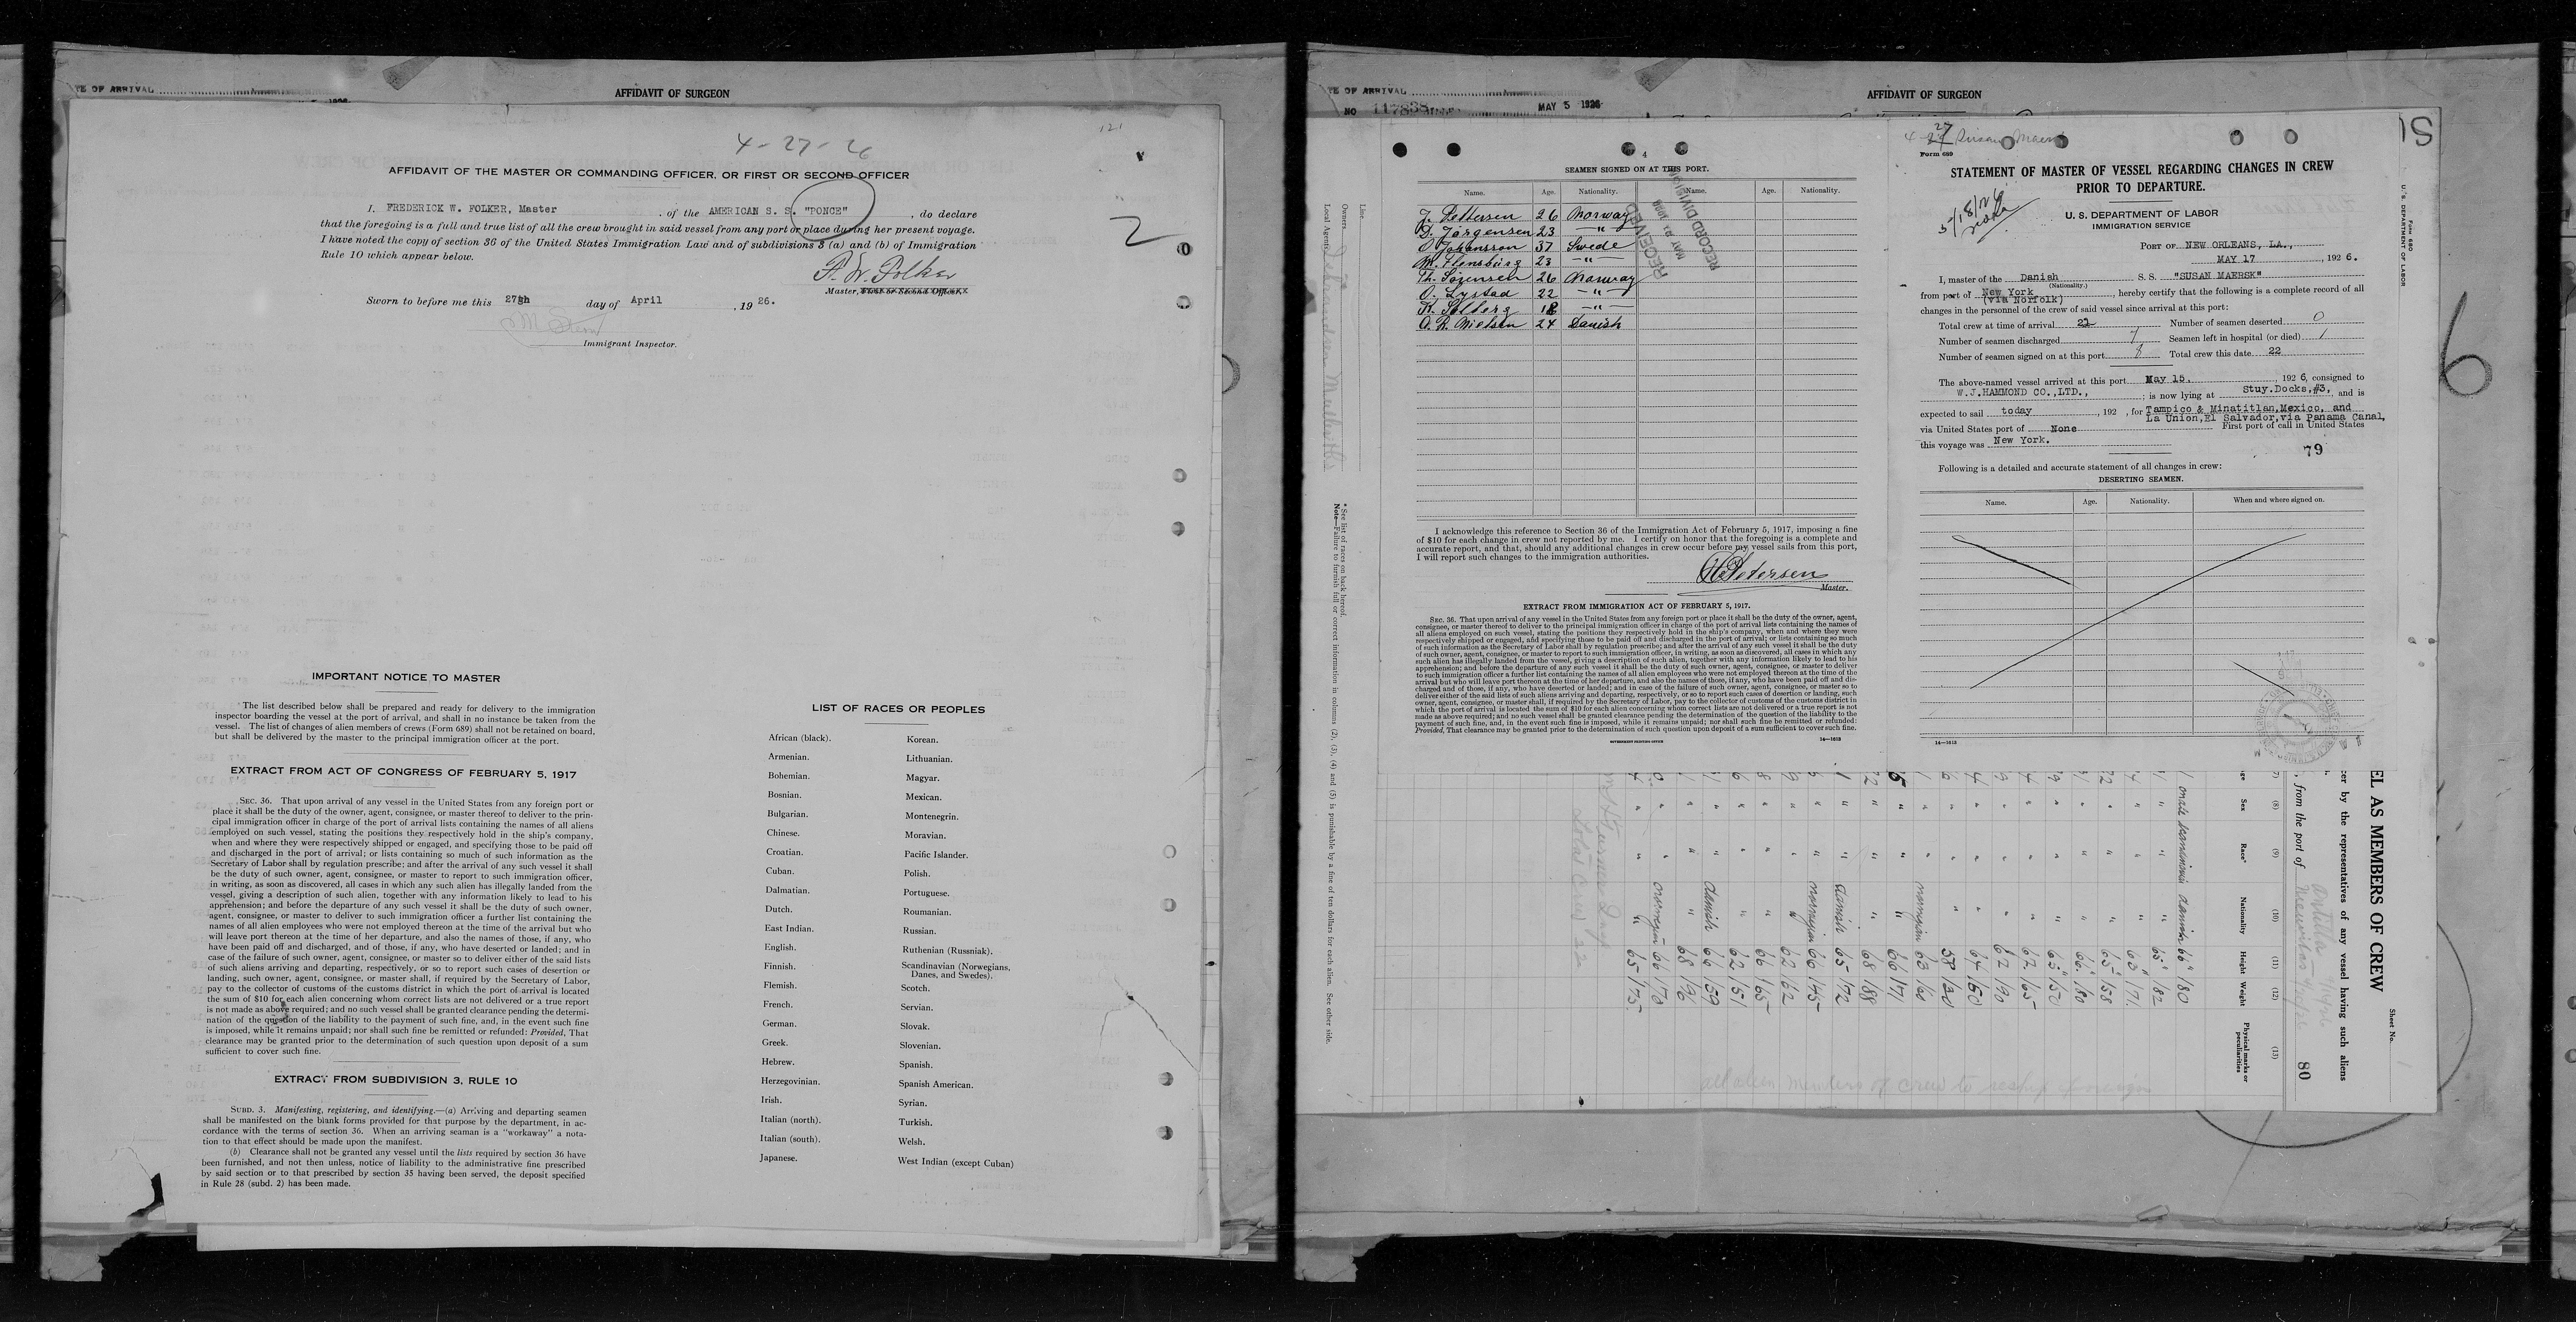 TE OF ARRIVAL
AFFIDAVIT OF SURGEON
4-27-26
121
AFFIDAVIT OF THE MASTER OR COMMANDING OFFICER, OR FIRST OR SECOND OFFICER
2
I, FREDERICK W. FOLKER, Master, of the AMERICAN S. S. "PONCE", do declare
that the foregoing is a full and true list of all the crew brought in said vessel from any port or place during her present voyage.
I have noted the copy of section 36 of the United States Immigration Law and of subdivisions 3 (a) and (b) of Immigration
Rule 10 which appear below.
F. W. Folker
Master, First or Second Officer.
Sworn to before me this 27th day of April, 1926.
Immigrant Inspector.
IMPORTANT NOTICE TO MASTER
The list described below shall be prepared and ready for delivery to the immigration
inspector boarding the vessel at the port of arrival, and shall in no instance be taken from the
vessel. The list of changes of alien members of crews (Form 689) shall not be retained on board,
but shall be delivered by the master to the principal immigration officer at the port.
EXTRACT FROM ACT OF CONGRESS OF FEBRUARY 5, 1917
SEC. 36. That upon arrival of any vessel in the United States from any foreign port or
place it shall be the duty of the owner, agent, consignee, or master thereof to deliver to the prin-
cipal immigration officer in charge of the port of arrival lists containing the names of all aliens
employed on such vessel, stating the positions they respectively hold in the ship's company,
when and where they were respectively shipped or engaged, and specifying those to be paid off
and discharged in the port of arrival; or lists containing so much of such information as the
Secretary of Labor shall by regulation prescribe; and after the arrival of any such vessel it shall
be the duty of such owner, agent, consignee, or master to report to such immigration officer,
in writing, as soon as discovered, all cases in which any such alien has illegally landed from the
vessel, giving a description of such alien, together with any information likely to lead to his
apprehension; and before the departure of any such vessel it shall be the duty of such owner,
agent, consignee, or master to deliver to such immigration officer a further list containing the
names of all alien employees who were not employed thereon at the time of the arrival but who
will leave port thereon at the time of her departure, and also the names of those, if any, who
have been paid off and discharged, and of those, if any, who have deserted or landed; and in
case of the failure of such owner, agent, consignee, or master so to deliver either of the said lists
of such aliens arriving and departing, respectively, or so to report such cases of desertion or
landing, such owner, agent, consignee, or master, shall, if required by the Secretary of Labor,
pay to the collector of customs of the customs district in which the port of arrival is located
the sum of $10 for each alien concerning whom correct lists are not delivered or a true report
is not made as above required; and no such vessel shall be granted clearance pending the determi-
nation of the question of the liability to the payment of such fine, and, in the event such fine
is imposed, while it remains unpaid; nor shall such fine be remitted or refunded: Provided, That
clearance may be granted prior to the determination of such question upon deposit of a sum
sufficient to cover such fine.
EXTRACT FROM SUBDIVISION 3, RULE 10
SUBD. 3. Manifesting, registering, and identifying.—(a) Arriving and departing seamen
shall be manifested on the blank forms provided for that purpose by the department, in ac-
cordance with the terms of section 36. When an arriving seaman is a "workaway" a nota-
tion to that effect should be made upon the manifest.
(b) Clearance shall not be granted any vessel until the lists required by section 36 have
been furnished, and not then unless, notice of liability to the administrative fine prescribed
by said section or to that prescribed by section 35 having been served, the deposit specified
in Rule 28 (subd. 2) has been made.
LIST OF RACES OR PEOPLES
African (black).
Armenian.
Bohemian.
Bosnian.
Bulgarian.
Chinese.
Croatian.
Cuban.
Dalmatian.
Dutch.
East Indian.
English.
Finnish.
Flemish.
French.
German.
Greek.
Hebrew.
Herzegovinian.
Irish.
Italian (north).
Italian (south).
Japanese.
Korean.
Lithuanian.
Magyar.
Mexican.
Montenegrin.
Moravian.
Pacific Islander.
Polish.
Portuguese.
Roumanian.
Russian.
Ruthenian (Russniak).
Scandinavian (Norwegians,
Danes, and Swedes).
Scotch.
Servian.
Slovak.
Slovenian.
Spanish.
Spanish American.
Syrian.
Turkish.
Welsh.
West Indian (except Cuban)
TE OF ARRIVAL
NO 117838
MAY 5 1926
AFFIDAVIT OF SURGEON
SEAMEN SIGNED ON AT THIS PORT.
Name. Age. Nationality. Name. Age. Nationality.
J. Pettersen 26 Norway
D. Jörgensen 23 —"—
O Johansson 37 Swede
M. Flensburg 23 —"—
Th. Sörensen 26 Norway
O. Lystad 22 —"—
K. Solberg 18 —"—
O. R. Nielsen 24 Danish
RECEIVED
MAY 21 1926
RECORD DIVISION
I acknowledge this reference to Section 36 of the Immigration Act of February 5, 1917, imposing a fine
of $10 for each change in crew not reported by me. I certify on honor that the foregoing is a complete and
accurate report, and that, should any additional changes in crew occur before my vessel sails from this port,
I will report such changes to the immigration authorities.
Petersen
Master.
EXTRACT FROM IMMIGRATION ACT OF FEBRUARY 5, 1917.
SEC. 36. That upon arrival of any vessel in the United States from any foreign port or place it shall be the duty of the owner, agent,
consignee, or master thereof to deliver to the principal immigration officer in charge of the port of arrival lists containing the names of
all aliens employed on such vessel, stating the positions they respectively hold in the ship's company, when and where they were
respectively shipped or engaged, and specifying those to be paid off and discharged in the port of arrival; or lists containing so much
of such information as the Secretary of Labor shall by regulation prescribe; and after the arrival of any such vessel it shall be the duty
of such owner, agent, consignee, or master to report to such immigration officer, in writing, as soon as discovered, all cases in which any
such alien has illegally landed from the vessel, giving a description of such alien, together with any information likely to lead to his
apprehension; and before the departure of any such vessel it shall be the duty of such owner, agent, consignee, or master to deliver
to such immigration officer a further list containing the names of all alien employees who were not employed thereon at the time of the
arrival but who will leave port thereon at the time of her departure, and also the names of those, if any, who have been paid off and dis-
charged and of those, if any, who have deserted or landed; and in case of the failure of such owner, agent, consignee, or master so to
deliver either of the said lists of such aliens arriving and departing, respectively, or so to report such cases of desertion or landing, such
owner, agent, consignee, or master, shall, if required by the Secretary of Labor, pay to the collector of customs of the customs district in
which the port of arrival is located the sum of $10 for each alien concerning whom correct lists are not delivered or a true report is not
made as above required; and no such vessel shall be granted clearance pending the determination of the question of the liability to the
payment of such fine, and, in the event such fine is imposed, while it remains unpaid; nor shall such fine be remitted or refunded:
Provided, That clearance may be granted prior to the determination of such question upon deposit of a sum sufficient to cover such fine.
GOVERNMENT PRINTING OFFICE
14—1613
4-27 Susan Maersk
Form 689
STATEMENT OF MASTER OF VESSEL REGARDING CHANGES IN CREW
PRIOR TO DEPARTURE.
5/18/26
U. S. DEPARTMENT OF LABOR
IMMIGRATION SERVICE
PORT OF NEW ORLEANS, LA.,
MAY 17, 1926.
I, master of the Danish S. S. "SUSAN MAERSK"
(Nationality.)
from port of New York (via Norfolk), hereby certify that the following is a complete record of all
changes in the personnel of the crew of said vessel since arrival at this port:
Total crew at time of arrival 22 Number of seamen deserted 0
Number of seamen discharged 7 Seamen left in hospital (or died) 1
Number of seamen signed on at this port 8 Total crew this date 22
The above-named vessel arrived at this port May 15., 1926, consigned to
W.J.HAMMOND CO.,LTD., ; is now lying at Stuy.Docks,#3, and is
expected to sail today, 192 , for Tampico & Minatitlan,Mexico, and
La Union,El Salvador,via Panama Canal,
via United States port of None First port of call in United States
this voyage was New York.
79
Following is a detailed and accurate statement of all changes in crew:
DESERTING SEAMEN.
Name. Age. Nationality. When and where signed on.
14—1613
6
Form 680
U. S. DEPARTMENT OF LABOR
EL AS MEMBERS OF CREW
Sheet No.
cer by the representatives of any vessel having such aliens
, from the port of
80
(8) (9) (10) (11) (12) (13)
Sex Race* Nationality Height Weight Physical marks or peculiarities
male Scandinavia danish 66 180
65 182
63 171
65 158
66 180
65 150
62 165
62 190
64 150
58 120
norwegian 63 160
66 171
68 188
danish 65 172
norwegian 66 145
62 162
66 165
62 151
danish 66 159
68 196
norwegian 66 170
65 175
Total Crew 22
all alien members of crew to reship foreign
Line
Owners
Local Agents
* See list of races on back hereof.
Note—Failure to furnish full or correct information in columns (2), (3), (4) and (5) is punishable by a fine of ten dollars for each alien. See other side.